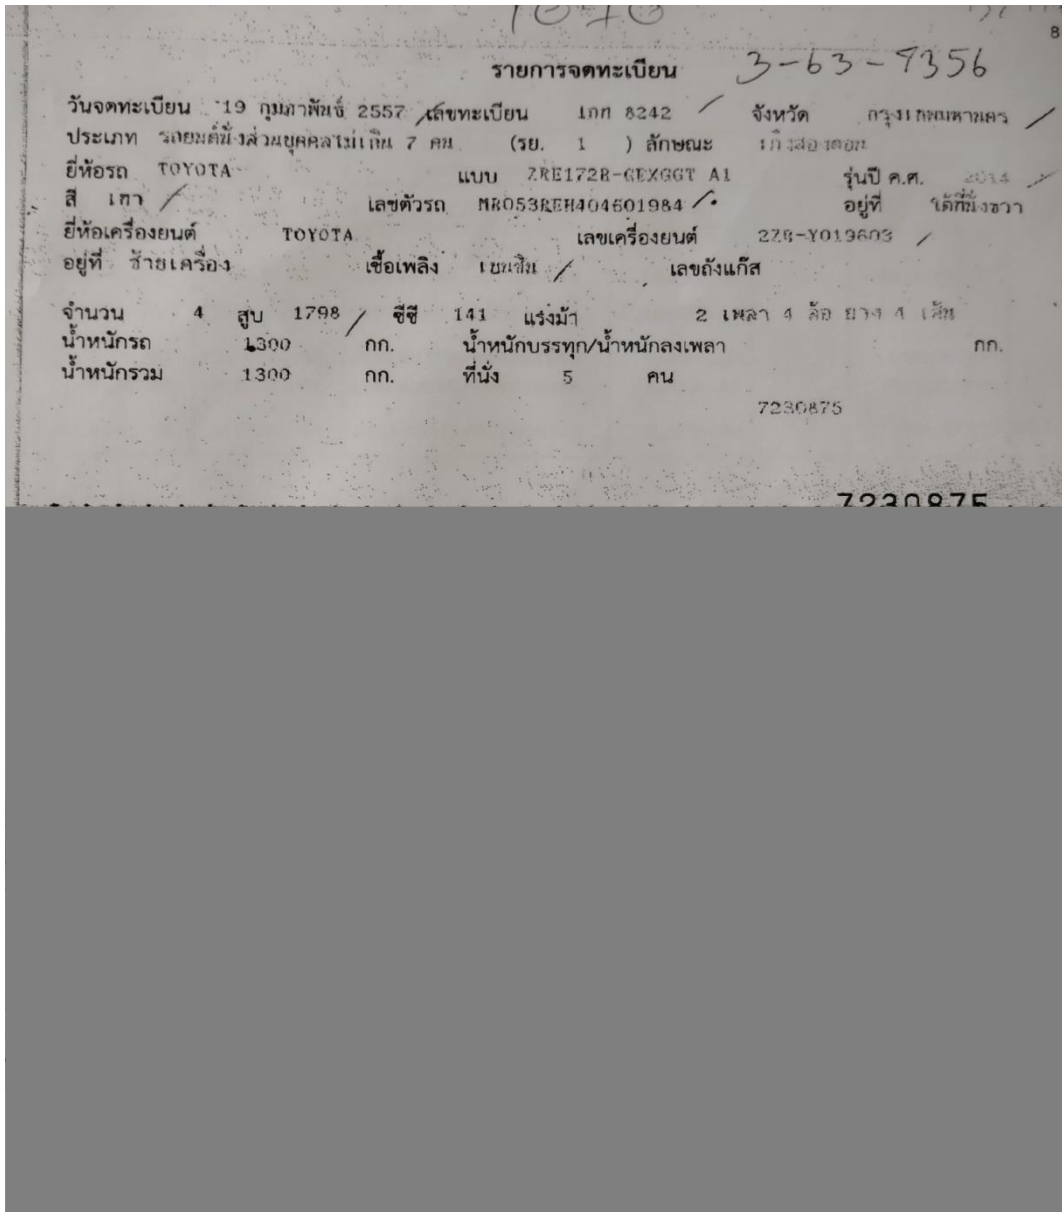 8
รายการจดทะเบียน 3-63-9356
วันจดทะเบียน 19 กุมภาพันธ์ 2557 เลขทะเบียน 1กก 8242 จังหวัด กรุงเทพมหานคร
ประเภท รถยนต์นั่งส่วนบุคคลไม่เกิน 7 คน (รย. 1 ) ลักษณะ เก๋งสองตอน
ยี่ห้อรถ TOYOTA แบบ ZRE172R-GEXGGT A1 รุ่นปี ค.ศ. 2014
สี เทา เลขตัวรถ MR053REH404601984 อยู่ที่ ใต้ที่นั่งขวา
ยี่ห้อเครื่องยนต์ TOYOTA เลขเครื่องยนต์ 2ZR-Y019603
อยู่ที่ ซ้ายเครื่อง เชื้อเพลิง เบนซิน เลขถังแก๊ส
จำนวน 4 สูบ 1798 ซีซี 141 แรงม้า 2 เพลา 4 ล้อ ยาง 4 เส้น
น้ำหนักรถ 1300 กก. น้ำหนักบรรทุก/น้ำหนักลงเพลา กก.
น้ำหนักรวม 1300 กก. ที่นั่ง 5 คน
7230875
7230875